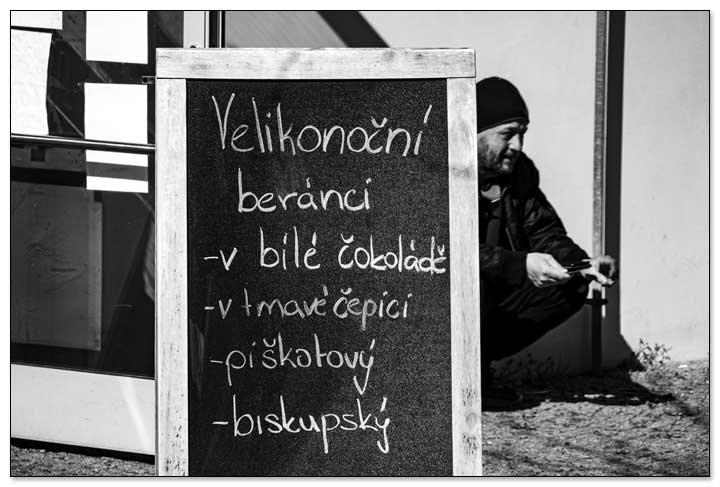 Velikonoční
beránci
-v bílé čokoládě
-v tmavé čepici
-piškotový
-biskupský